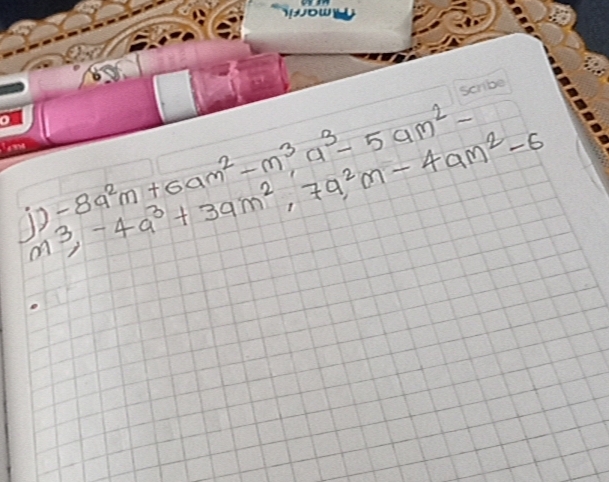 Scribe
j) -8a²m + 6am² - m³, a³ - 5am² -
m³, -4a³ + 3am², 7a²m - 4am² - 6